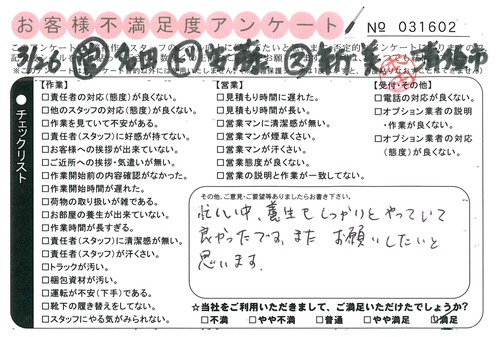 お客様不満足度アンケート
№ 031602
3/26
チェックリスト
【作業】
□責任者の対応(態度)が良くない。
□他のスタッフの対応(態度)が良くない。
□作業を見ていて不安がある。
□責任者(スタッフ)に好感が持てない。
□お客様への挨拶が出来ていない。
□ご近所への挨拶・気遣いが無い。
□作業開始前の内容確認がなかった。
□作業開始時間が遅れた。
□荷物の取り扱いが雑である。
□お部屋の養生が出来ていない。
□作業時間が長すぎる。
□責任者(スタッフ)に清潔感が無い。
□責任者(スタッフ)が汗くさい。
□トラックが汚い。
□梱包資材が汚い。
□運転が不安(下手)である。
□靴下の履き替えをしてない。
□スタッフにやる気がみられない。
【営業】
□見積もり時間に遅れた。
□見積もり時間が長い。
□営業マンに清潔感が無い。
□営業マンが煙草くさい。
□営業マンが汗くさい。
□営業態度が良くない。
□営業の説明と作業が一致してない。
【受付・その他】
□電話の対応が良くない。
□オプション業者の説明
・作業が良くない。
□オプション業者の対応
(態度)が良くない。
その他、ご意見・ご要望等ありましたらお書き下さい。
忙しい中、養生もしっかりとやっていて
良かったです。また お願いしたいと
思います。
☆当社をご利用いただきまして、ご満足いただけたでしょうか?
□不満 □やや不満 □普通 □やや満足 ☑満足